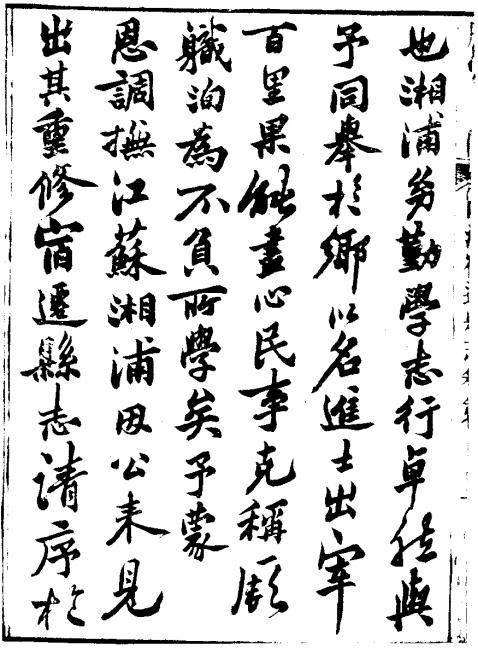 也湘浦勇勤學志行卓然與
予同舉於鄉以名進士出宰
百里果能盡心民事克稱厥
職洵為不負所學矣予蒙
恩調撫江蘇湘浦因公来見
出其重修宿遷縣志請序於